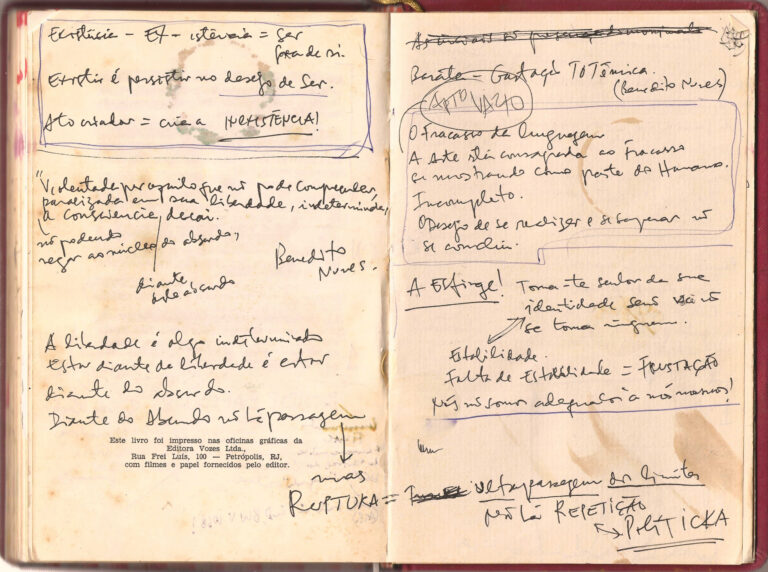 Existência – EX – istência = Ser
fora de si.
Existir é persistir no desejo de Ser.
Ato criador = cria a INEXISTÊNCIA!
"Violentada por aquilo que não pode compreender,
paralizada em sua liberdade, indeterminada,
a consciência decai.
não podendo
negar ao núcleo do absurdo,
Benedito
Nunes.
diante
do absurdo
A liberdade é algo indeterminado
Estar diante da liberdade é estar
diante do absurdo.
Diante do Absurdo não há passagem
Este livro foi impresso nas oficinas gráficas da
Editora Vozes Ltda.,
Rua Frei Luís, 100 — Petrópolis, RJ,
com filmes e papel fornecidos pelo editor.
mas
RUPTURA = ultrapassagem dos limites
não há REPETIÇÃO
POLÍTICKA
Barata – Gustação TOTÊMICA.
(Benedito Nunes)
ATO
VAZIO
O Fracasso da linguagem
A Arte está consagrada ao fracasso
se mostrando como parte do Humano.
Incompleto.
O Desejo de se realizar e se não
se conclui.
A Esfinge! Torna-te senhor da sua
identidade senão você
se torna ninguém.
Estabilidade.
Falta de Estabilidade = FRUSTAÇÃO
Nós não somos adequados à nós mesmos!